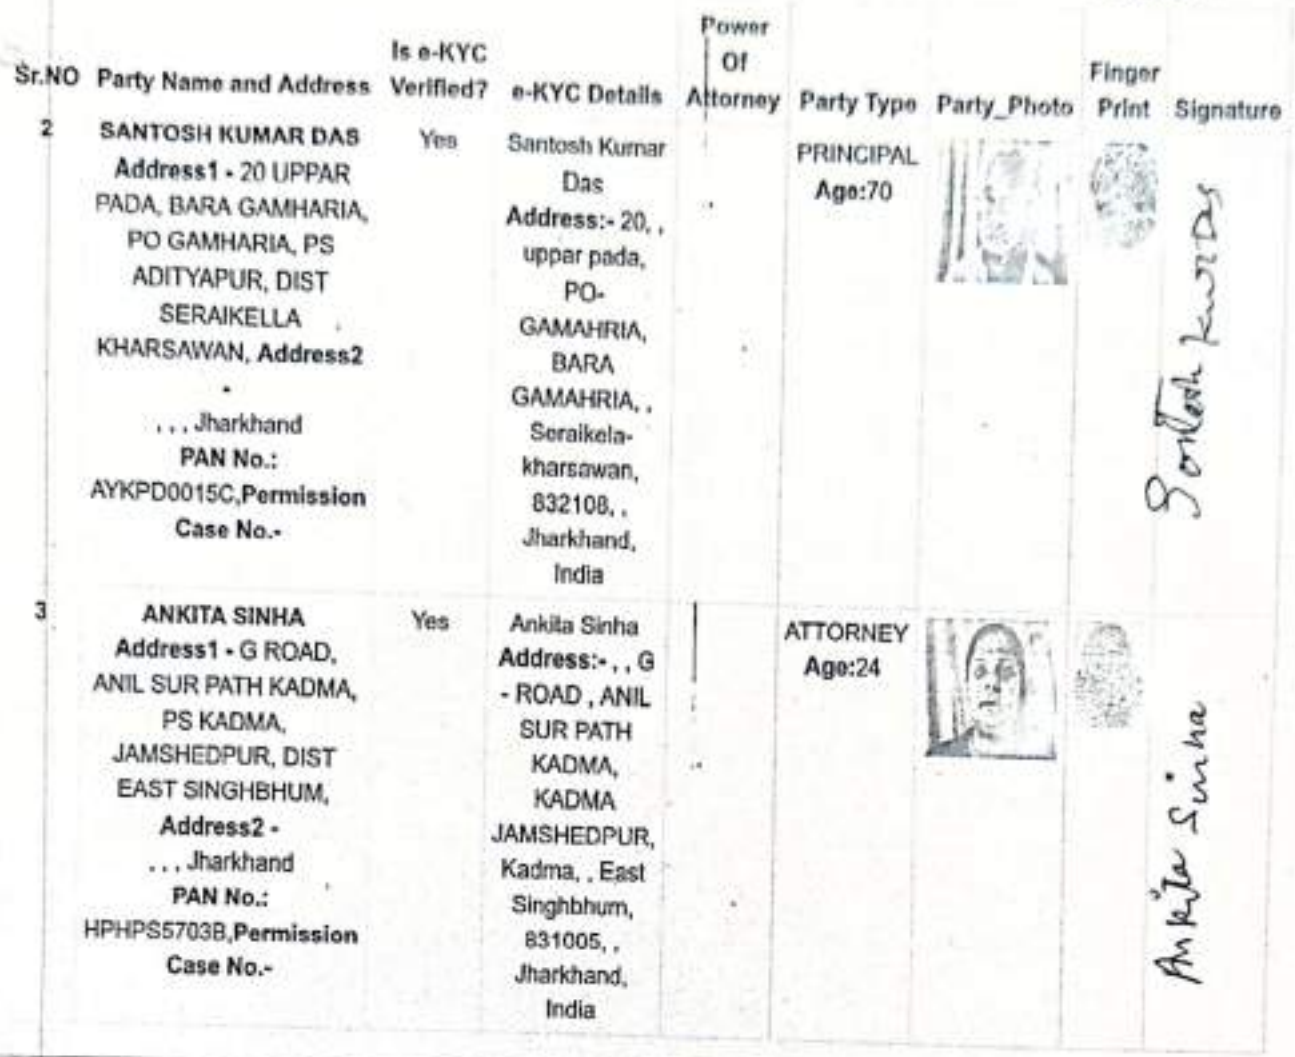 Sr.NO Party Name and Address Is e-KYC Verified? e-KYC Details Power Of Attorney Party Type Party_Photo Finger Print Signature
2
SANTOSH KUMAR DAS
Address1 - 20 UPPAR
PADA, BARA GAMHARIA,
PO GAMHARIA, PS
ADITYAPUR, DIST
SERAIKELLA
KHARSAWAN, Address2
-
, , , Jharkhand
PAN No.:
AYKPD0015C,Permission
Case No.-
Yes
Santosh Kumar
Das
Address:- 20, ,
uppar pada,
PO-
GAMAHRIA,
BARA
GAMAHRIA, ,
Seraikela-
kharsawan,
832108, ,
Jharkhand,
India
PRINCIPAL
Age:70
Santosh Kumar Das
3
ANKITA SINHA
Address1 - G ROAD,
ANIL SUR PATH KADMA,
PS KADMA,
JAMSHEDPUR, DIST
EAST SINGHBHUM,
Address2 -
, , , Jharkhand
PAN No.:
HPHPS5703B,Permission
Case No.-
Yes
Ankita Sinha
Address:- , , G
- ROAD , ANIL
SUR PATH
KADMA,
KADMA
JAMSHEDPUR,
Kadma, , East
Singhbhum,
831005, ,
Jharkhand,
India
ATTORNEY
Age:24
Ankita Sinha